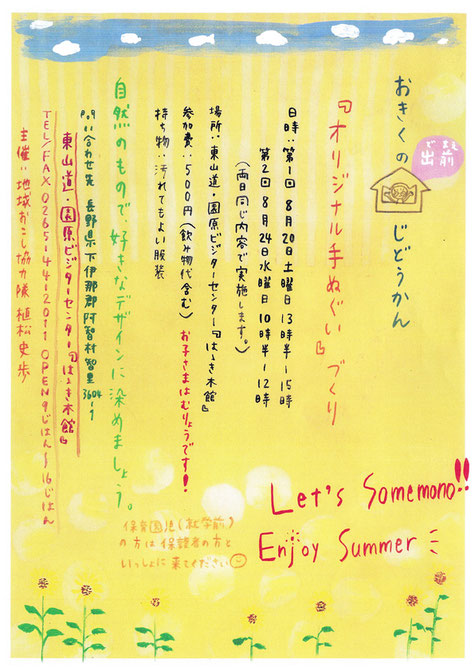 おきくの
でまえ
出前
じどうかん
『オリジナル手ぬぐい』づくり
日時：第1回 8月20日土曜日 13時半〜15時
第2回 8月24日水曜日 10時半〜12時
（両日同じ内容で実施します。）
場所：東山道・園原ビジターセンター『はゝき木館』
参加費：500円（飲み物代含む） お子さまはむりょうです！
持ち物：汚れてもよい服装
自然のもので、好きなデザインに染めましょう。
問い合わせ先 長野県下伊那郡阿智村智里3604-1
東山道・園原ビジターセンター『はゝき木館』
TEL/FAX 0265-44-2011 OPEN 9じはん〜16じはん
主催：地域おこし協力隊 植松史歩
Let's Somemono!!
Enjoy Summer
保育園児（就学前）
の方は保護者の方と
いっしょに来てください